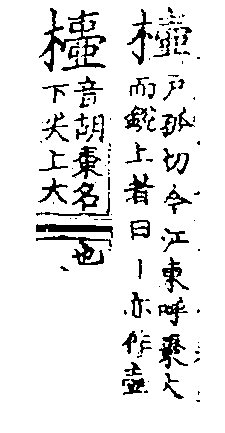 戶孤切今江東呼棗大
而銳上者曰丨亦作壺
音胡東名
下尖上大
也